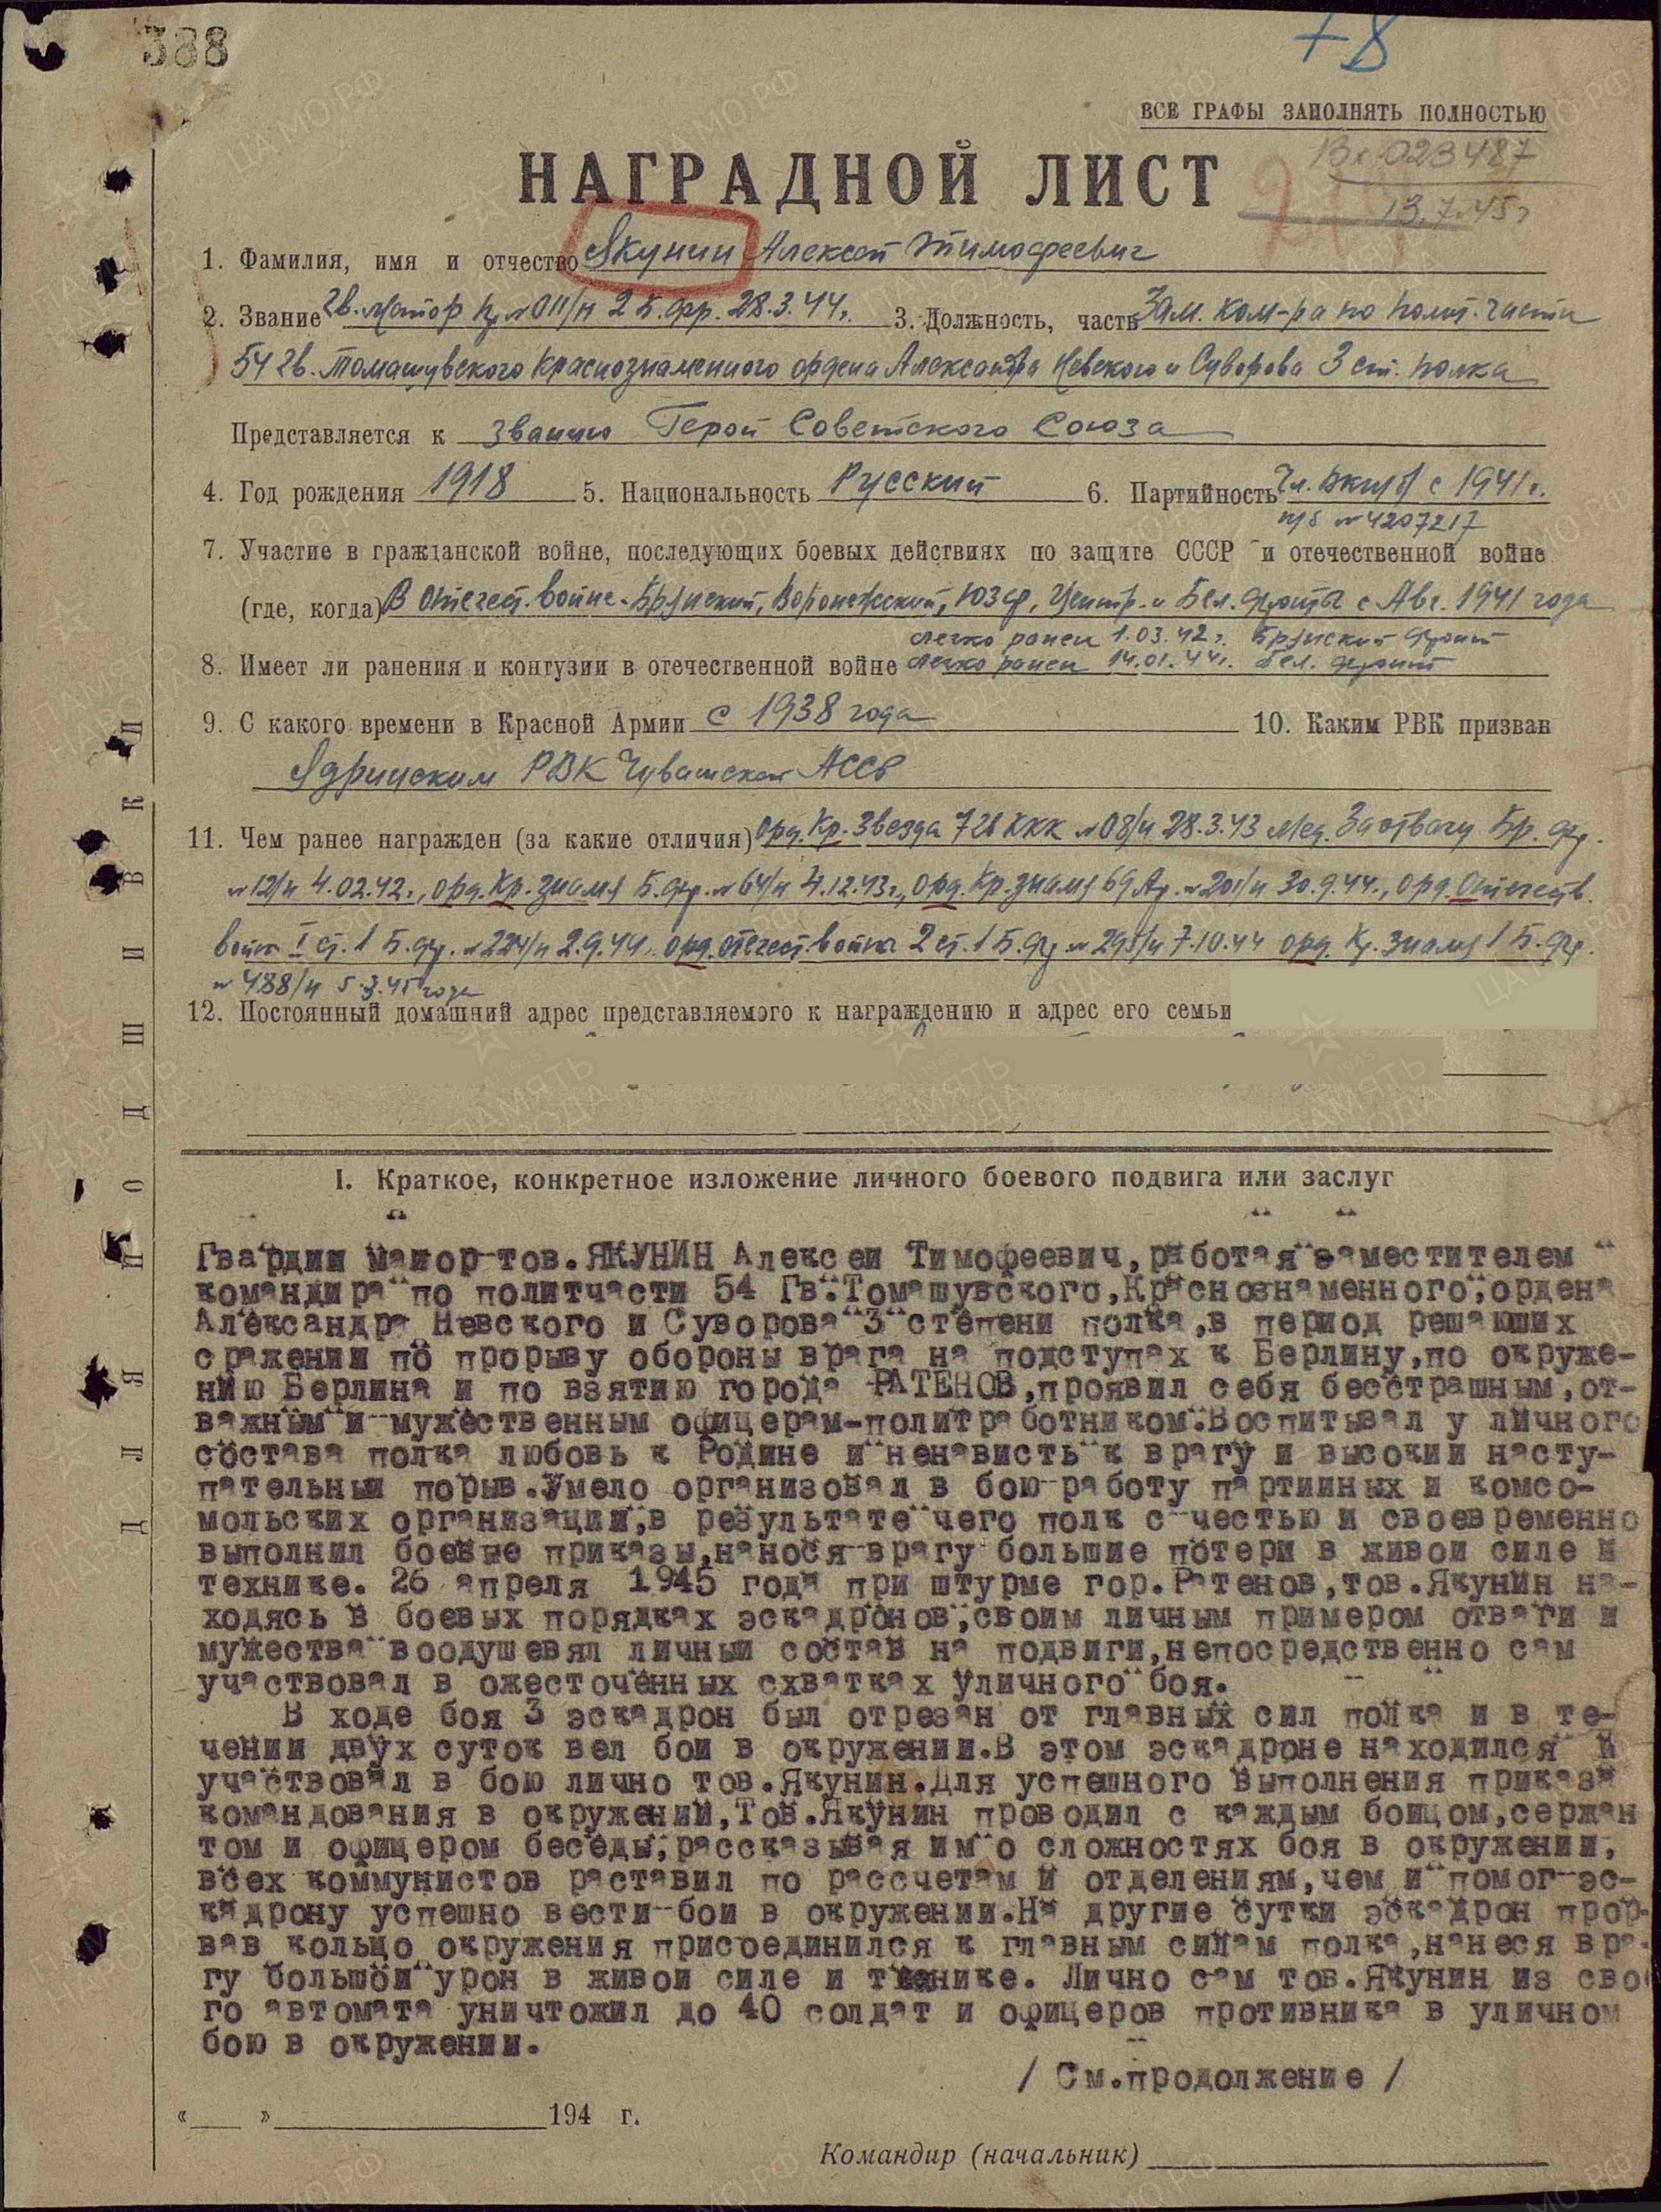 388
+8
ВСЕ ГРАФЫ ЗАПОЛНЯТЬ ПОЛНОСТЬЮ
НАГРАДНОЙ ЛИСТ
Вх. 023487
13.7.45г
1. Фамилия, имя и отчество Якунин Алексей Тимофеевич
2. Звание гв. Майор Пр №011/н 2 Б. фр. 28.3.44г. 3. Должность, часть Зам. ком-ра по полит. части
54 гв. Томашувского Краснознаменного ордена Александра Невского и Суворова 3 ст. полка
Представляется к званию Герой Советского Союза
4. Год рождения 1918 5. Национальность Русский 6. Партийность Чл. ВКП/б/ с 1941г.
п/б №4207217
7. Участие в гражданской войне, последующих боевых действиях по защите СССР и отечественной войне
(где, когда) В Отечеств. войне - Брянский, Воронежский, ЮЗФ, Центр. и Бел. фронты с Авг. 1941 года
легко ранен 1.03.42г. Брянский фронт
8. Имеет ли ранения и контузии в отечественной войне легко ранен 14.01.44г. Бел. фронт
9. С какого времени в Красной Армии с 1938 года 10. Каким РВК призван
Ядринским РВК Чувашской АССР
11. Чем ранее награжден (за какие отличия) Орд. Кр. Звезда 7 гв ККК №08/н 28.3.43 Мед. За отвагу Бр. фр.
№12/н 4.02.42г., орд. Кр. знамя Б. фр. №64/н 4.12.43г., Орд. Кр. знамя 69 Ар. №201/н 30.9.44., орд. Отечеств.
войны I ст. 1 Б. фр. №224/н 2.9.44г. орд. отечест. войны 2 ст. 1 Б. фр. №295/н 7.10.44 орд. Кр. знамя 1 Б. фр.
№488/н 5.3.45 года
12. Постоянный домашний адрес представляемого к награждению и адрес его семьи
I. Краткое, конкретное изложение личного боевого подвига или заслуг
Гвардии майор тов. ЯКУНИН Алексей Тимофеевич, работая заместителем
командира по политчасти 54 Гв. Томашувского, Краснознаменного, ордена
Александра Невского и Суворова 3 степени полка, в период решающих
сражений по прорыву обороны врага на подступах к Берлину, по окруже-
нию Берлина и по взятию города РАТЕНОВ, проявил себя бесстрашным, от-
важным и мужественным офицерам-политработником. Воспитывал у личного
состава полка любовь к Родине и ненависть к врагу и высокий насту-
пательный порыв. Умело организовал в бою работу партийных и комсо-
мольских организаций, в результате чего полк с честью и своевременно
выполнил боевые приказы, нанося врагу большие потери в живой силе и
технике. 26 апреля 1945 года при штурме гор. Ратенов, тов. Якунин на-
ходясь в боевых порядках эскадронов, своим личным примером отваги и
мужества воодушевял личный состав на подвиги, непосредственно сам
участвовал в ожесточенных схватках уличного боя.
В ходе боя 3 эскадрон был отрезан от главных сил полка и в те-
чении двух суток вел бой в окружении. В этом эскадроне находился и
участвовал в бою лично тов. Якунин. Для успешного выполнения приказа
командования в окружений, Тов. Якунин проводил с каждым бойцом, сержан
том и офицером беседы, рассказывая им о сложностях боя в окружении,
всех коммунистов раставил по рассчетам и отделениям, чем и помог эс-
кадрону успешно вести бой в окружении. На другие сутки эскадрон прор-
вав кольцо окружения присоединился к главным силам полка, нанеся вра-
гу большой урон в живой силе и технике. Лично сам тов. Якунин из сво
го автомата уничтожил до 40 солдат и офицеров противника в уличном
бою в окружении.
/ См. продолжение /
« » 194 г.
Командир (начальник)
ДЛЯ ПОДШИВКИ